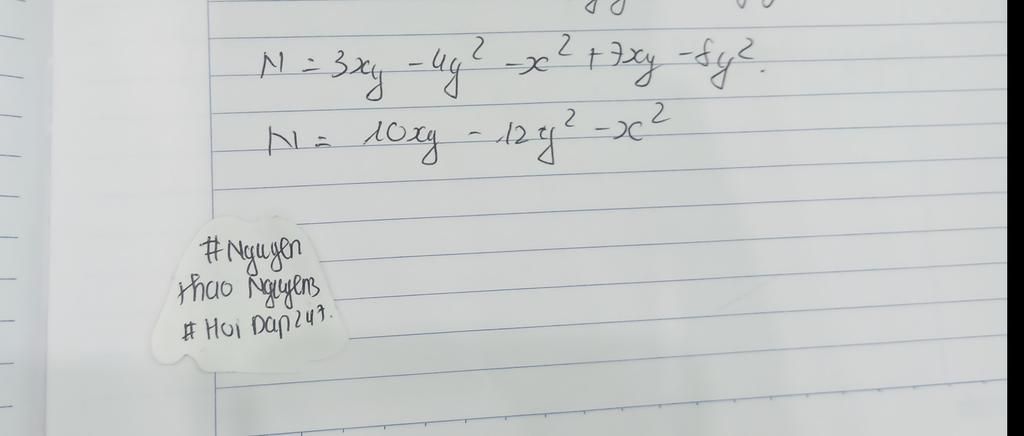 N = 3xy - 4y² - x² + 7xy - 8y².
N = 10xy - 12y² - x²
#Nguyen
thao Nguyen3
# Hoi Dap247.